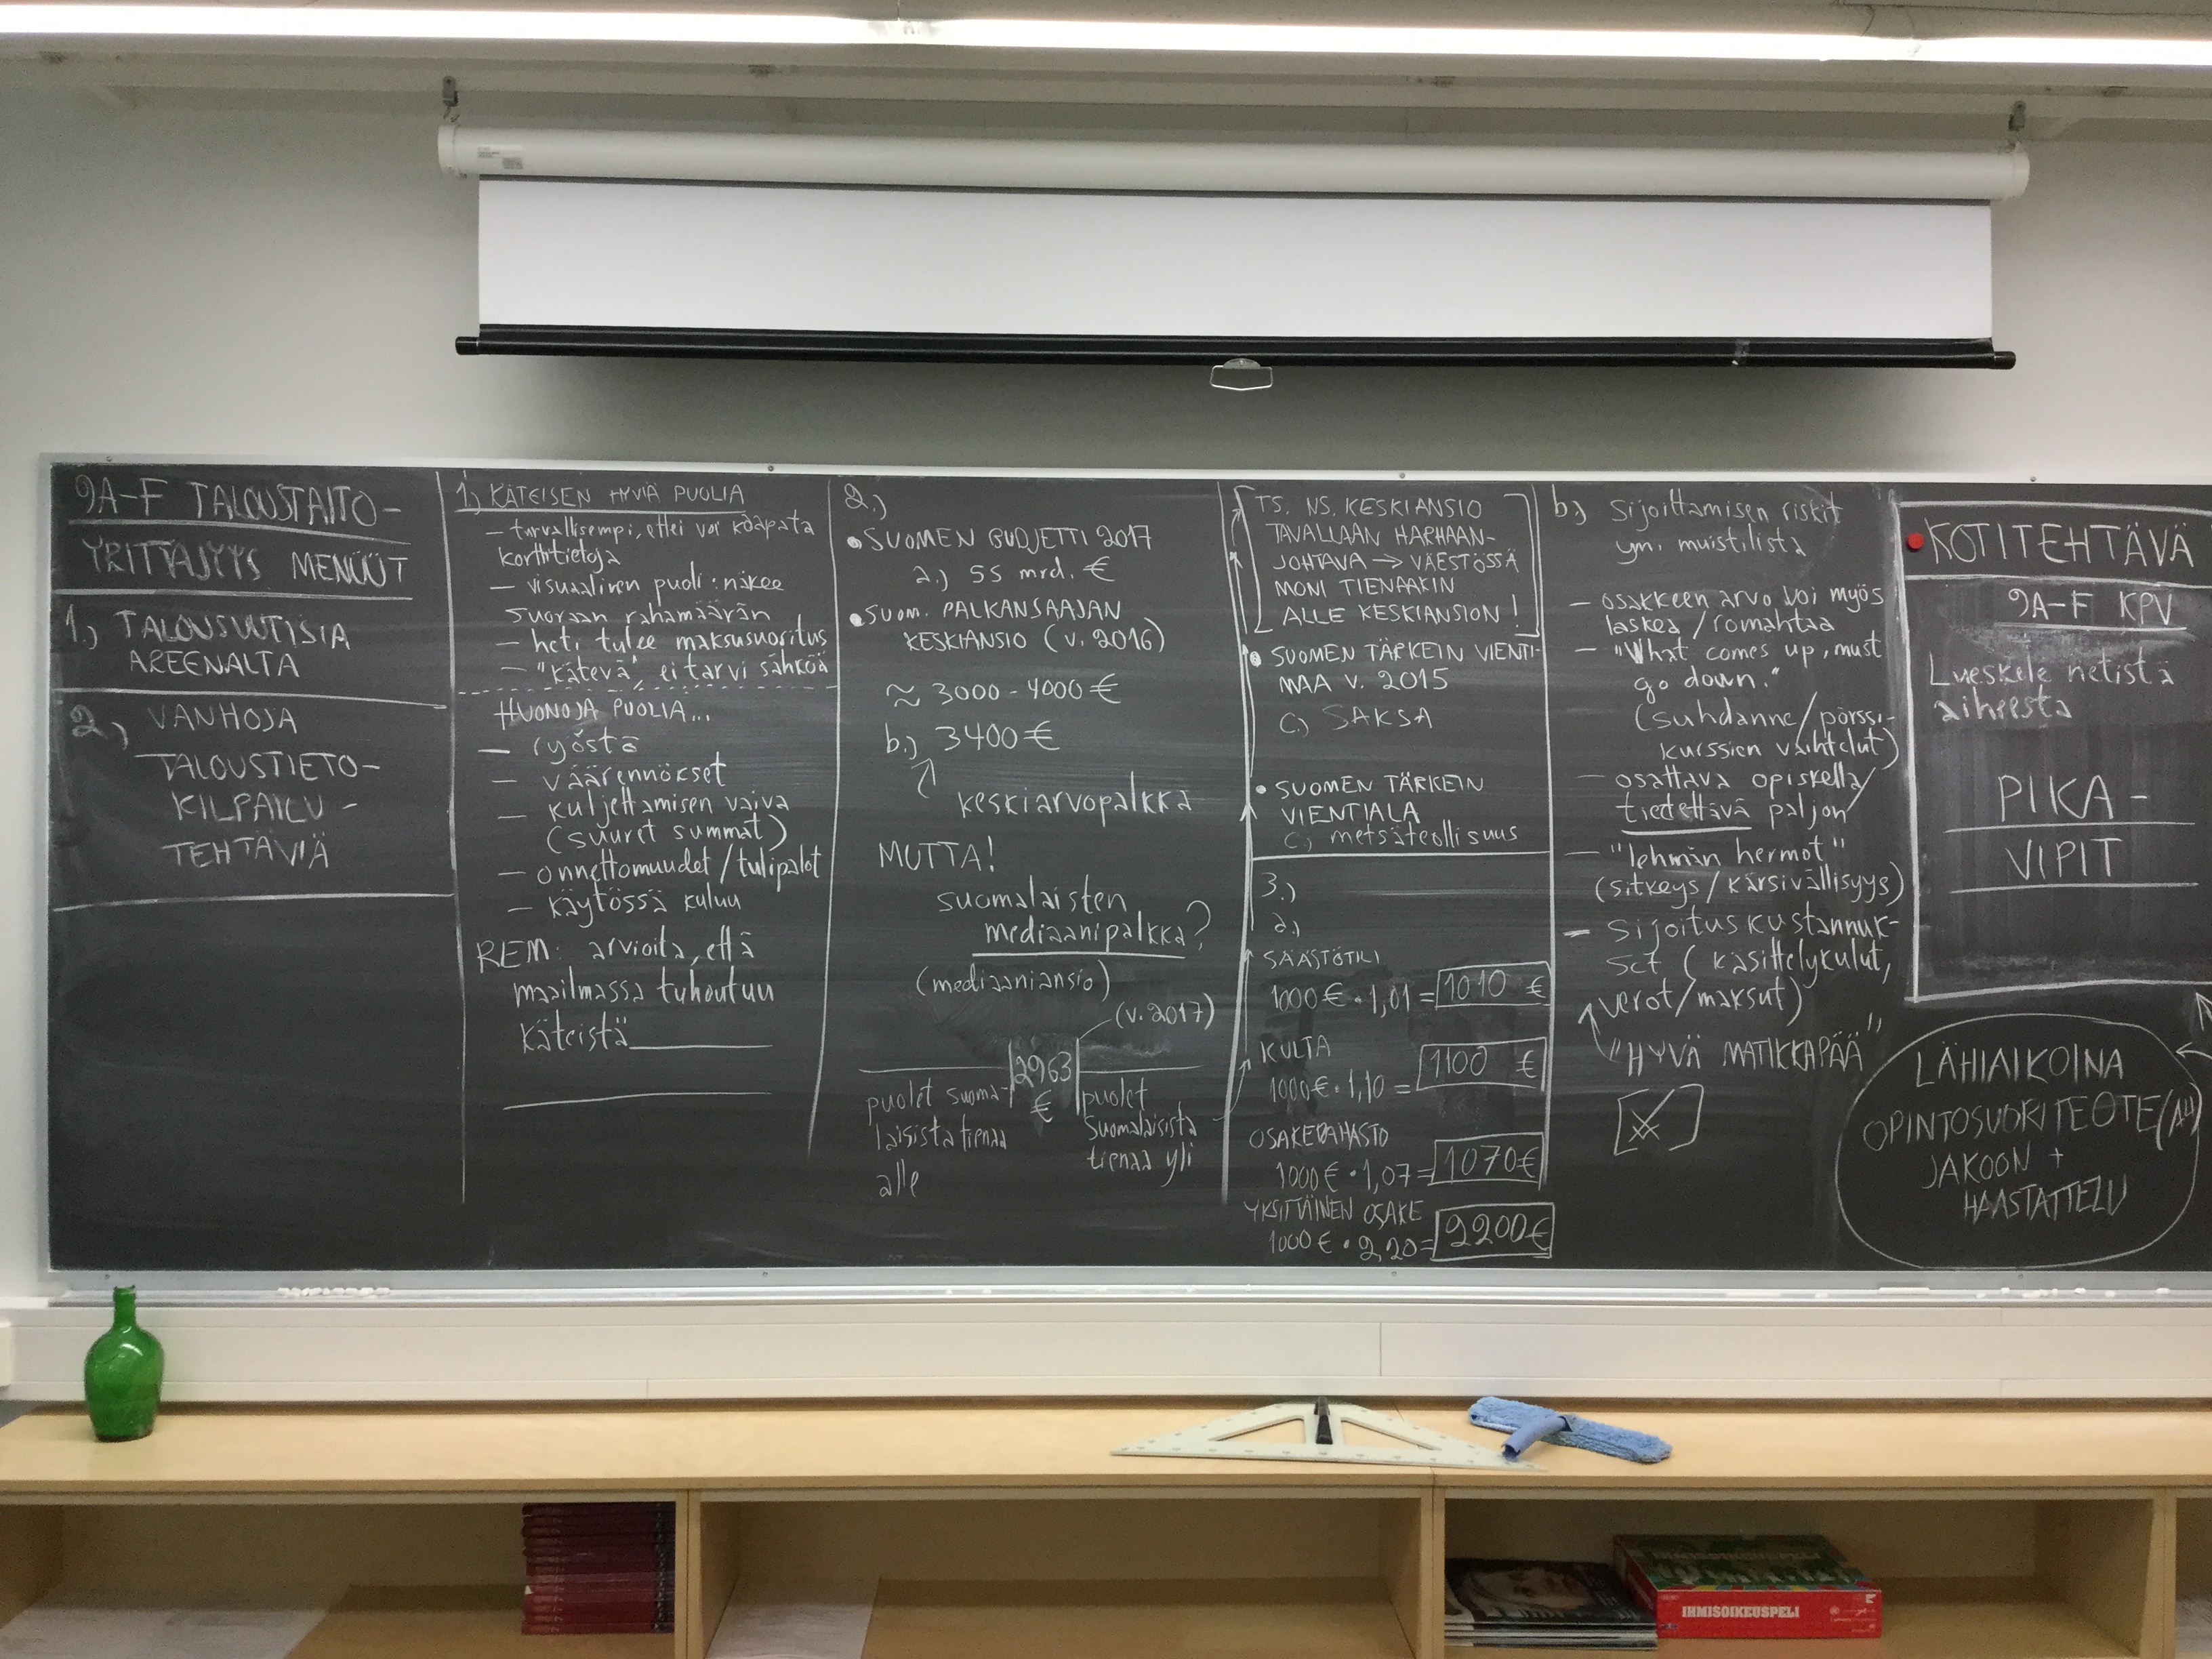 9A-F TALOUSTAITO-
YRITTÄJYYS MENÜÜT
1.) TALOUSUUTISIA
AREENALTA
2.) VANHOJA
TALOUSTIETO-
KILPAILU-
TEHTÄVIÄ
1.) KÄTEISEN HYVIÄ PUOLIA
– turvallisempi, ettei voi kaapata
korttitietoja
– visuaalinen puoli: näkee
suoraan rahamäärän
– heti tulee maksusuoritus
– "kätevä", ei tarvi sähköä
HUONOJA PUOLIA...
– ryöstö
– väärennökset
– kuljettamisen vaiva
(suuret summat)
– onnettomuudet/tulipalot
– käytössä kuluu
REM: arvioita, että
maailmassa tuhoutuu
käteistä
2.)
• SUOMEN BUDJETTI 2017
a.) 55 mrd. €
• SUOM. PALKANSAAJAN
KESKIANSIO (v. 2016)
≈ 3000-4000 €
b.) 3400 €
keskiarvopalkka
MUTTA!
suomalaisten
mediaanipalkka?
(mediaaniansio)
(v. 2017)
2963
€
puolet suoma-
laisista tienaa
alle
puolet
suomalaisista
tienaa yli
TS. NS. KESKIANSIO
TAVALLAAN HARHAAN-
JOHTAVA → VÄESTÖSSÄ
MONI TIENAAKIN
ALLE KESKIANSION!
• SUOMEN TÄRKEIN VIENTI-
MAA V. 2015
C.) SAKSA
• SUOMEN TÄRKEIN
VIENTIALA
C.) metsäteollisuus
3.)
a.)
SÄÄSTÖTILI
1000 € · 1,01 = 1010 €
KULTA
1000 € · 1,10 = 1100 €
OSAKERAHASTO
1000 € · 1,07 = 1070 €
YKSITTÄINEN OSAKE
1000 € · 2,20 = 2200 €
b.) Sijoittamisen riskit
ym. muistilista
– osakkeen arvo voi myös
laskea/romahtaa
– "What comes up, must
go down."
(suhdanne/pörssi-
kurssien vaihtelut)
– osattava opiskella/
tiedettävä paljon
– "lehmän hermot"
(sitkeys/kärsivällisyys)
– sijoituskustannuk-
set (käsittelykulut,
verot/maksut)
"HYVÄ MATIKKAPÄÄ"
KOTITEHTÄVÄ
9A-F KPV
Lueskele netistä
aiheesta
PIKA-
VIPIT
LÄHIAIKOINA
OPINTOSUORITEOTE (A4)
JAKOON +
HAASTATTELU
IHMISOIKEUSPELI
IHMISOIKEUSPELI